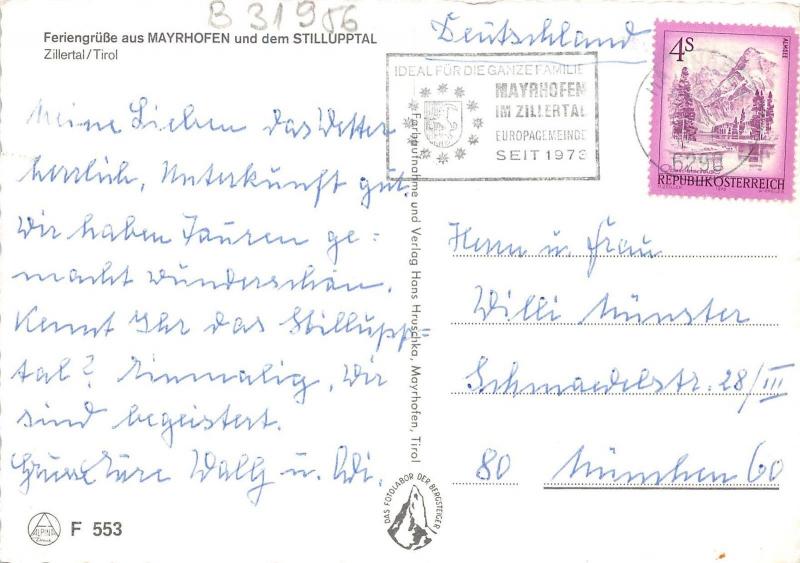 B 31956
Feriengrüße aus MAYRHOFEN und dem STILLUPPTAL
Zillertal/Tirol
Deutschland
IDEAL FÜR DIE GANZE FAMILIE
MAYRHOFEN
IM ZILLERTAL
EUROPAGEMEINDE
SEIT 1973
4S
ALMSEE
REPUBLIK ÖSTERREICH
6290
Meine Lieben das Wetter
herrlich, Unterkunft gut.
Wir haben Touren ge=
macht wunderschön.
Kennt Ihr das Stillupp=
tal? Einmalig, wir
sind begeistert.
Eure
Farbaufnahme und Verlag Hans Hruschka, Mayrhofen, Tirol
Herrn u. Frau
Willi Münster
Schmaedelstr. 28/III
80 München 60
DAS FOTOLABOR DER BERGSTEIGER
ALPINA
Druck
F 553